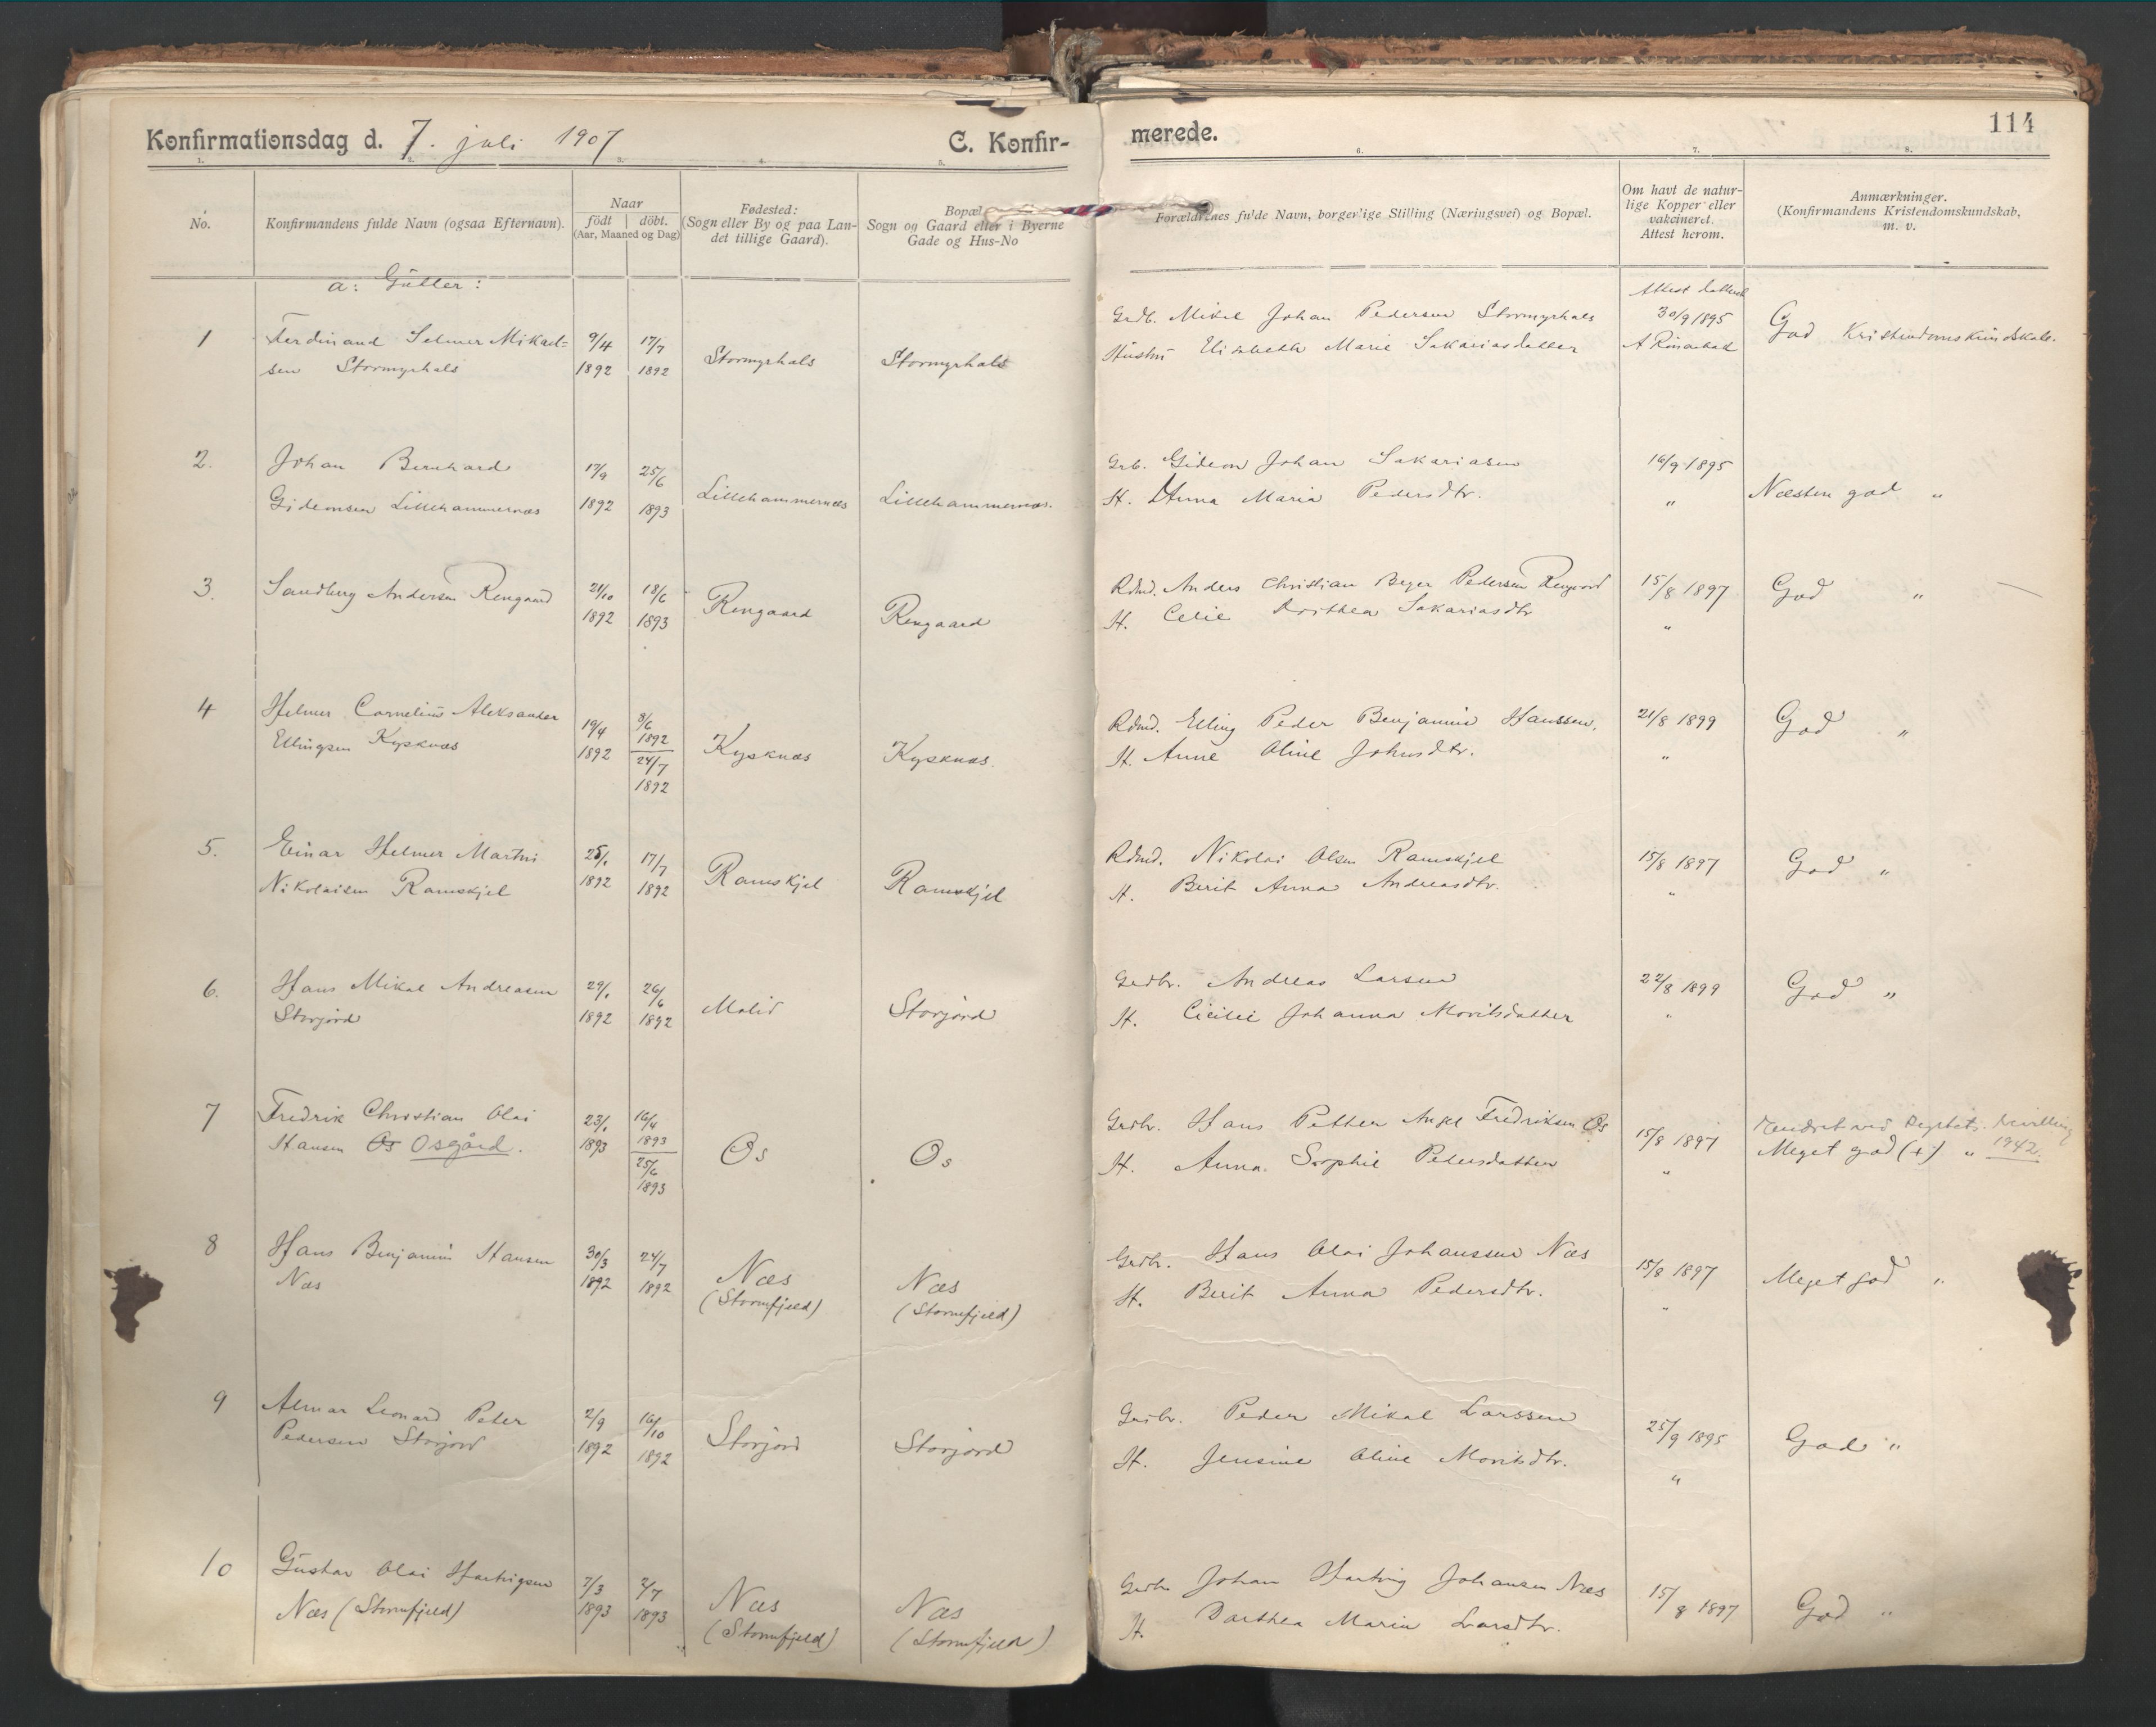 Konfirmationsdag d. 7. juli 1907
C. Konfir-
merede.
114
1. 2. 3. 4. 5. 6. 7. 8.
No.
Konfirmandens fulde Navn (ogsaa Efternavn).
Naar
födt | döbt.
(Aar, Maaned og Dag)
Fødested:
(Sogn eller By og paa Lan-
det tillige Gaard).
Bopæl
Sogn og Gaard eller i Byerne
Gade og Hus-No
Forældrenes fulde Navn, borgerlige Stilling (Næringsvei) og Bopæl.
Om havt de natur-
lige Kopper eller
vakcineret.
Attest herom.
Anmærkninger.
(Konfirmandens Kristendomskundskab,
m. v.
a: Gutter:
1 Ferdinand Selmer Mikael=
sen Stormyrhals
9/4 1892
17/7 1892
Stormyrhals
Stormyrhals
Grdb. Mikal Johan Pedersen Stormyrhals
Hustru Elisabeth Marie Sakariasdatter
Attest
30/9 1895
God Kristendomskundskab.
2. Johan Bernhard
Gideonsen Lillehammernæs
17/9 1892
25/6 1893
Lillehammernæs
Lillehammernæs.
Grb. Gideon Johan Sakariasen
H. Anna Maria Pedersdtr.
16/9 1895
"
Næsten god "
3. Sandberg Andersen Rengaard
21/10 1892
18/6 1893
Rengaard
Rengaard
Rdmd. Anders Christian Beyer Pedersen Rengaard
H. Celie Dorithea Sakariasdtr
15/8 1897
"
God "
4 Helmer Cornelius Aleksander
Ellingsen Kysknæs
19/4 1892
8/6 1892
24/7 1892
Kysknæs
Kysknæs.
Rdmd. Elling Peder Benjamin Hanssen.
H. Anne Oline Johnsdtr.
21/8 1899
"
God "
5. Einar Helmer Martin
Nikolaisen Ramskjel
25/1 1892
17/7 1892
Ramskjel
Ramskjel
Rdmd. Nikolai Olsen Ramskjel
H. Berit Anna Andreasdtr.
15/8 1897
"
God "
6. Hans Mikal Andreasen
Storjord
29/1 1892
26/6 1892
Molid
Storjord
Grdbr. Andreas Larsen
H. Cicilie Johanna Moritsdatter
22/8 1899
"
God "
7 Fredrik Christian Olai
Hansen Os Osgård.
23/1 1893
16/4 1893
25/6 1893
Os
Os
Grdbr. Hans Petter Angel Fredriksen Os
H. Anna Sophie Pedersdatter
15/8 1897
"
Meget god (+) " 1942.
8 Hans Benjamin Hansen
Næs
30/3 1892
24/7 1892
Næs
(Stormfjeld)
Næs
(Stormfjeld)
Grdbr. Hans Olai Johanssen Næs
H. Berit Anna Pedersdtr.
15/8 1897
"
Meget god "
9 Almar Leonard Peter
Pedersen Storjord
2/9 1892
16/10 1892
Storjord
Storjord
Grdbr. Peder Mikal Larssen
H. Jensine Oline Moritsdtr.
25/9 1895
"
God "
10 Gustav Olai Hartvigsen
Næs (Stormfjeld)
7/3 1893
2/7 1893
Næs
(Stormfjeld)
Næs
(Stormfjeld)
Grdbr Johan Hartvig Johansen Næs
H. Dorthea Maria Larsdtr.
15/8 1897
God "